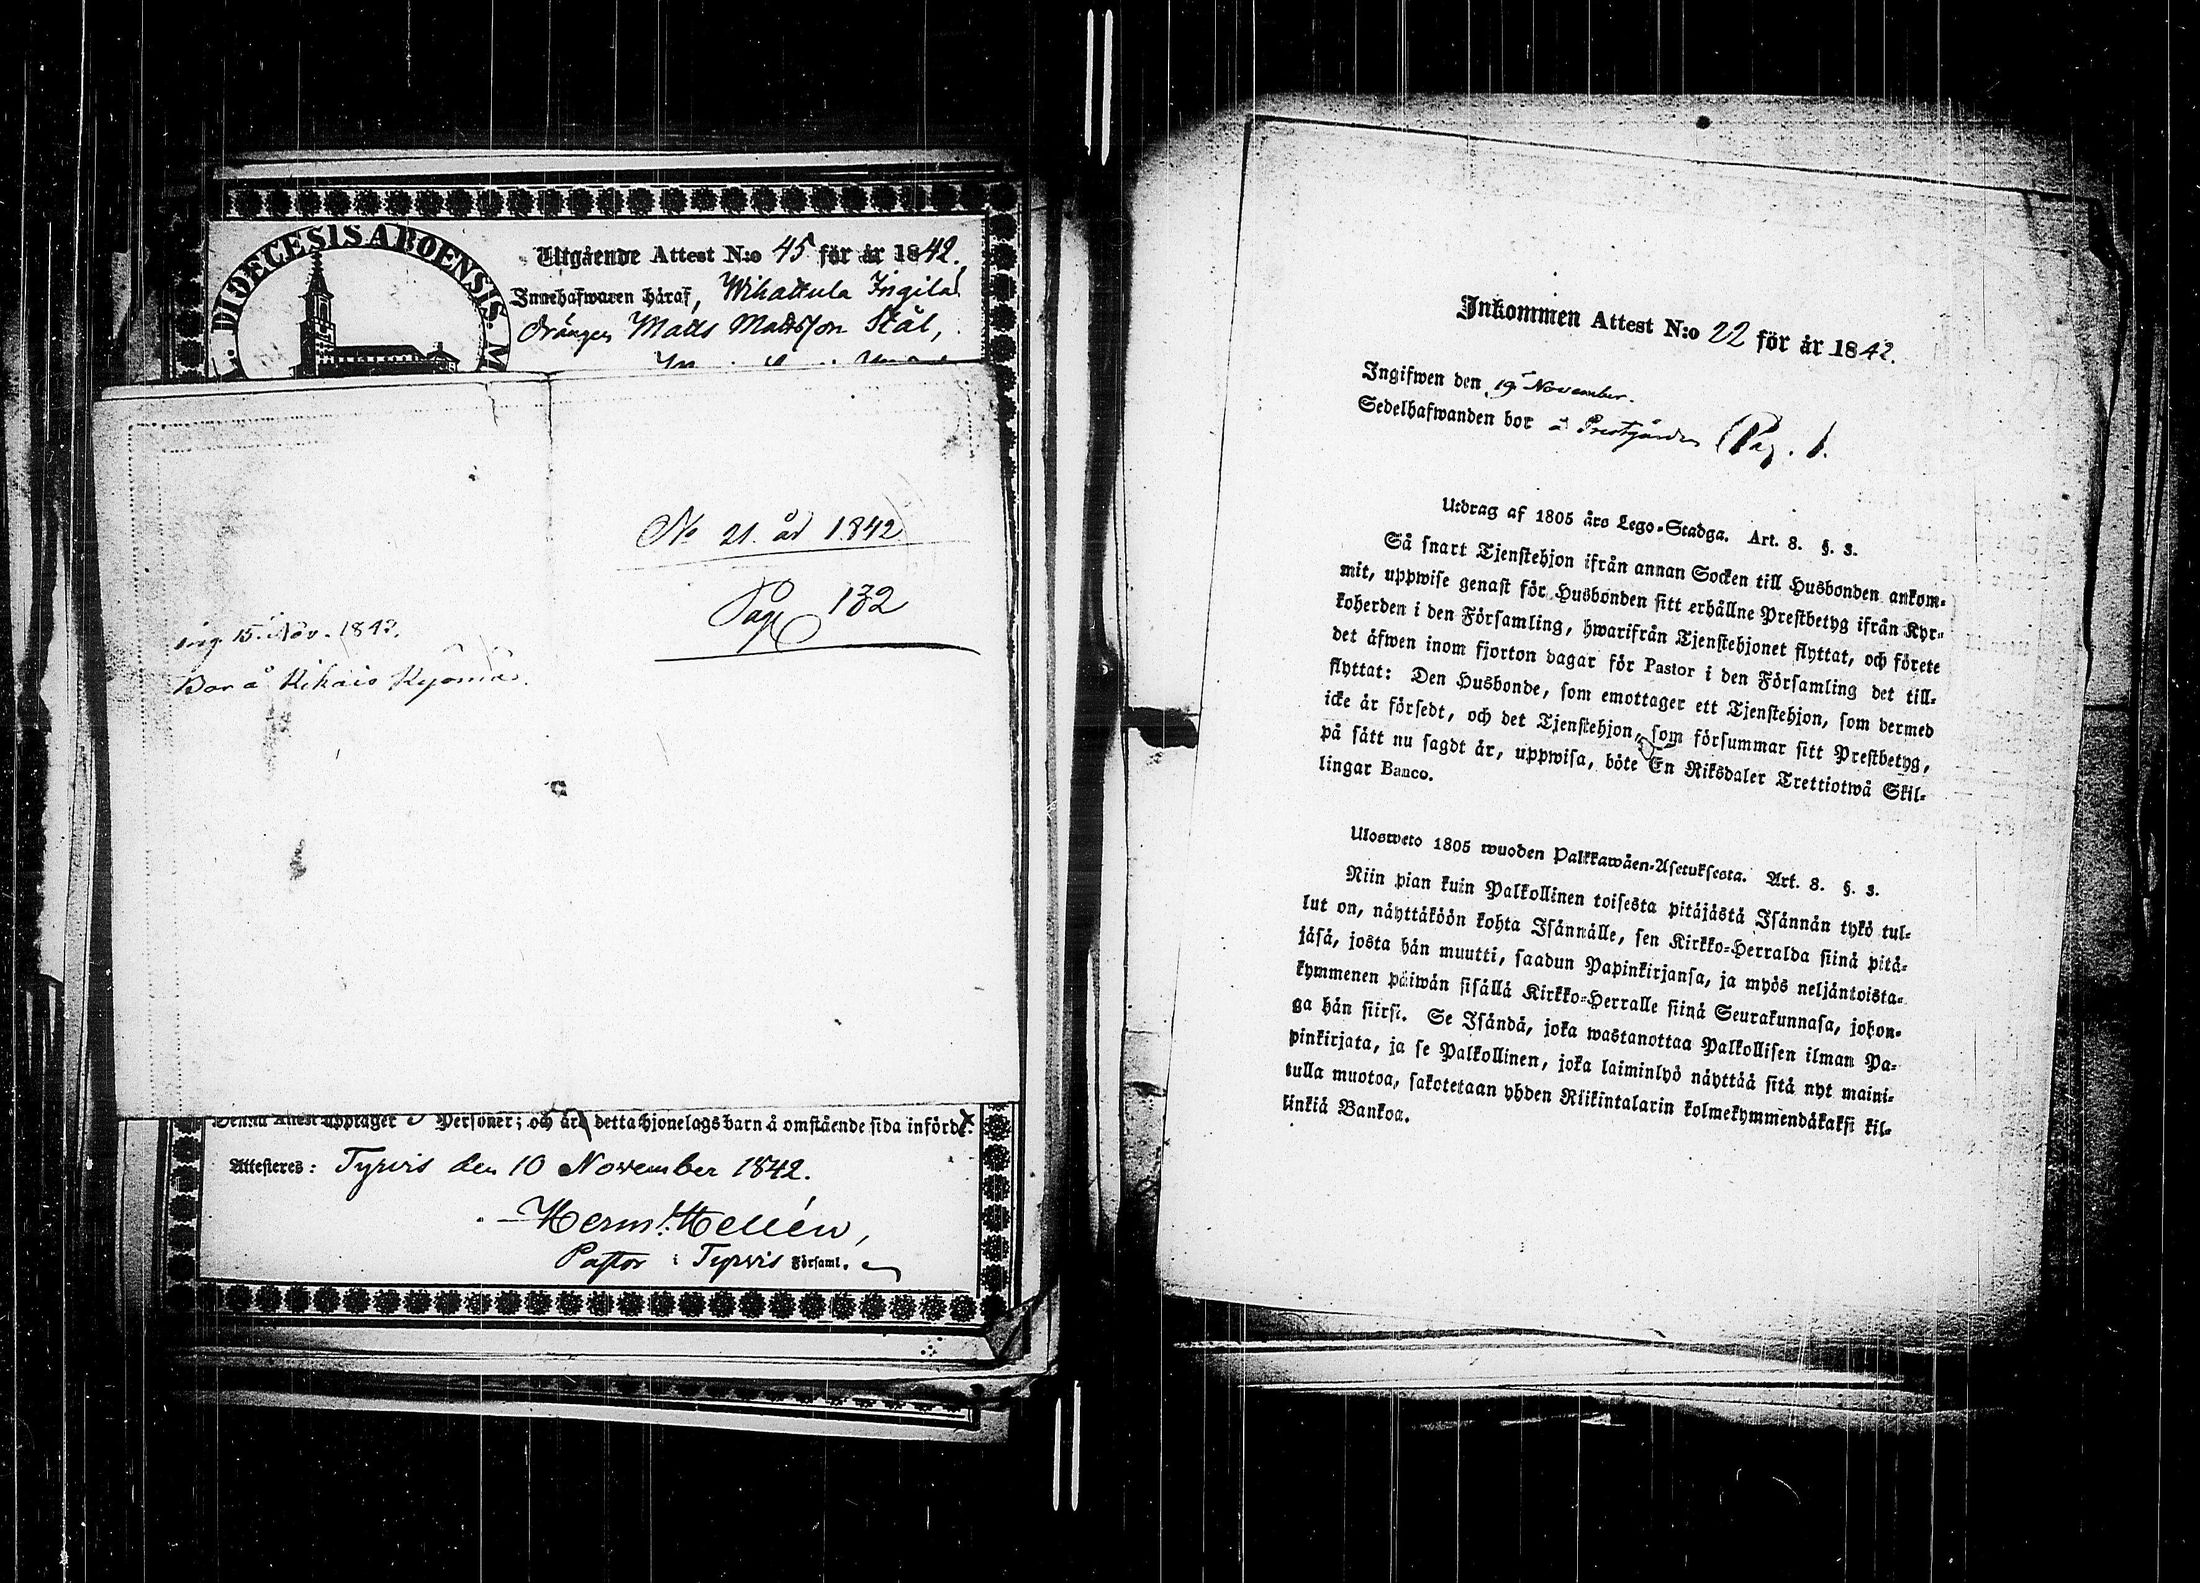 DIOECESIS ABOENSIS. M
Utgående Attest N:o 45 för år 1842.
Innehafwaren håraf, Wihattula Ingilä
drängen Matts Mattsson Stål,
No 21. år 1842
Pag 132
ing. 15. Nov. 1842.
Bor å Kihais
Denna Attest upptager Personer; och åro detta hjonelags barn å omstående sida införde.
Attesteres: Tyrvis den 10 November 1842.
Herm. Hellén,
Pastor i Tyrvis Församl.
Inkommen Attest N:o 22 för år 1842.
Ingifwen den 19 November.
Sedelhafwanden bor å Prestgården (Pag. 1.
Utdrag af 1805 års Lego-Stadga. Art. 8. §. 3.
Så snart Tjenstehjon ifrån annan Socken till Husbonden ankom-
mit, uppwise genast för Husbonden sitt erhållne Prestbetyg ifrån Kyr-
koherden i den Församling, hwarifrån Tjenstehjonet flyttat, och förete
det åfwen inom fjorton dagar för Pastor i den Församling det till-
flyttat: Den Husbonde, som emottager ett Tjenstehjon, som dermed
icke år försedt, och det Tjenstehjon, som försummar sitt Prestbetyg,
på sått nu sagdt år, uppwisa, böte En Riksdaler Trettiotwå Skil-
lingar Banco.
Ulosweto 1805 wuoden Palkkawåen-Asetuksesta. Art. 8. §. 3.
Niin pian kuin Palkollinen toisesta pitåjåstå Isånnån tykö tul-
lut on, nåyttåköön kohta Isånnålle, sen Kirkko-Herralda siinå pitå-
jåså, josta hån muutti, saadun Papinkirjansa, ja myös neljåntoista-
kymmenen påiwån sisållå Kirkko-Herralle siinå Seurakunnasa, johon-
ga hån siirsi. Se Isåndå, joka wastanottaa Palkollisen ilman Pa-
pinkirjata, ja se Palkollinen, joka laiminlyö nåyttåå sitå nyt maini-
tulla muotoa, sakotetaan yhden Riikintalarin kolmekymmendåkaksi kil-
linkiå Bankoa.